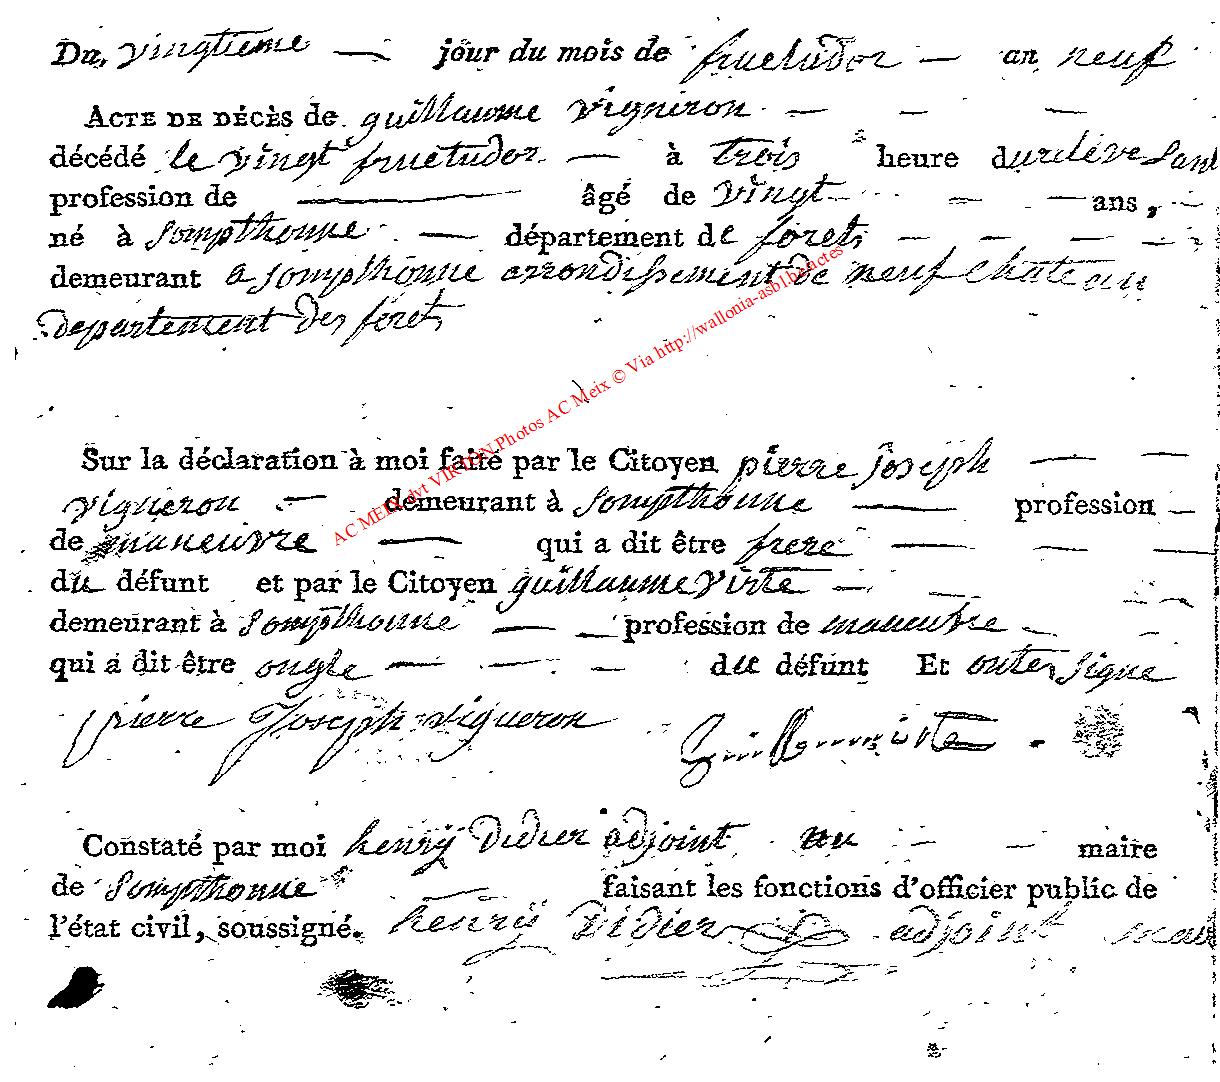 Du vingtieme — jour du mois de fructudor — an neuf
ACTE DE DÉCÈS de guillaume vigniron — — —
décédé le vingt fructudor — à trois heure du
profession de — âgé de vingt — — ans, —
né à sompthonne — département de forets — — — —
demeurant a sompthonne arrondissement de neufchateau
departement des forets
AC MEIX dvt VIRTON Photos AC Meix © Via http://wallonia-asbl.be/actes
Sur la déclaration à moi faite par le Citoyen pierre joseph — —
vigneron — demeurant à sompthonne — profession —
de maneuvre — qui a dit être frere — — —
du défunt et par le Citoyen guillaume virte — —
demeurant à sompthonne — — profession de maneuvre — —
qui a dit être ongle — — — du défunt Et onter signe
pierre Joseph vigueron
Constaté par moi henrÿ Didier adjoint au — — maire
de sompthonne — faisant les fonctions d'officier public de
l'état civil, soussigné. henrÿ Didier adjoint